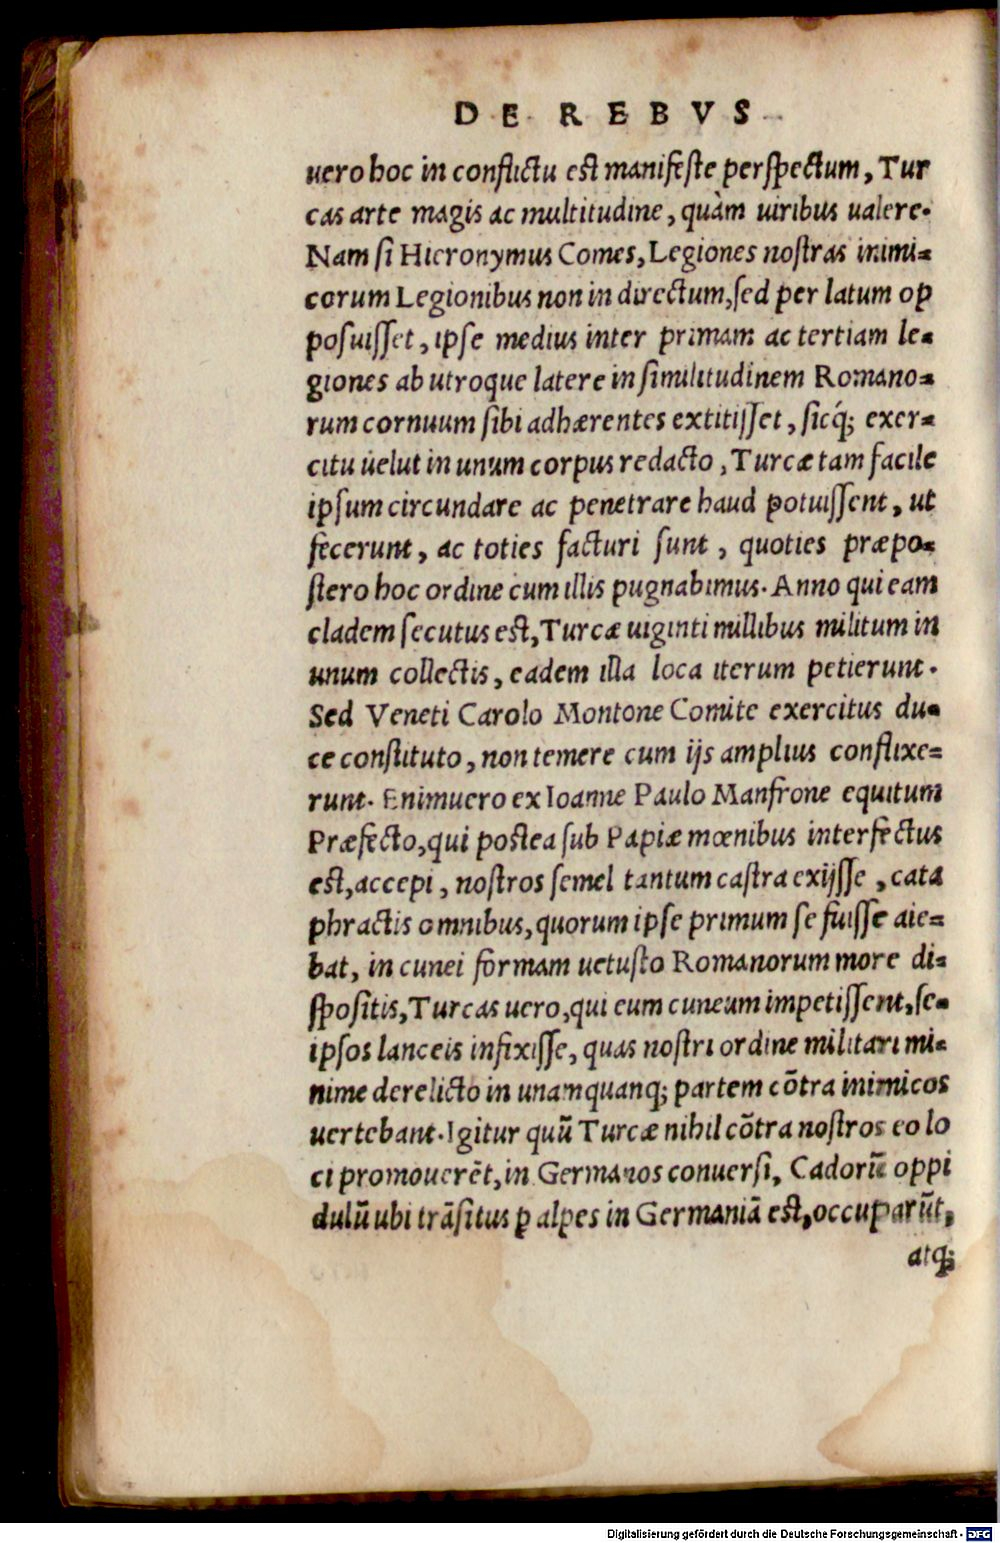 DE REBVS
uero hoc in conflictu est manifeste perspectum, Tur
cas arte magis ac multitudine, quàm uiribus ualere.
Nam si Hieronymus Comes, Legiones nostras inimi-
corum Legionibus non in directum, sed per latum op
posuisset, ipse medius inter primam ac tertiam le-
giones ab utroque latere in similitudinem Romano-
rum cornuum sibi adhærentes extitisset, sicq́; exer-
citu uelut in unum corpus redacto, Turcæ tam facile
ipsum circundare ac penetrare haud potuissent, ut
fecerunt, ac toties facturi sunt, quoties præpo-
stero hoc ordine cum illis pugnabimus. Anno qui eam
cladem secutus est, Turcæ uiginti millibus militum in
unum collectis, eadem illa loca iterum petierunt.
Sed Veneti Carolo Montone Comite exercitus du-
ce constituto, non temere cum ijs amplius conflixe-
runt. Enimuero ex Ioanne Paulo Manfrone equitum
Præfecto, qui postea sub Papiæ mœnibus interfectus
est, accepi, nostros semel tantum castra exijsse, cata
phractis omnibus, quorum ipse primum se fuisse aie-
bat, in cunei formam uetusto Romanorum more di-
spositis, Turcas uero, qui eum cuneum impetissent, se-
ipsos lanceis infixisse, quas nostri ordine militari mi-
nime derelicto in unamquanq; partem cõtra inimicos
uertebant. Igitur quũ Turcæ nihil cõtra nostros eo lo
ci promouerẽt, in Germanos conuersi, Cadorũ oppi
dulũ ubi trãsitus ꝑ alpes in Germaniã est, occuparũt,
atq;
Digitalisierung gefördert durch die Deutsche Forschungsgemeinschaft - DFG